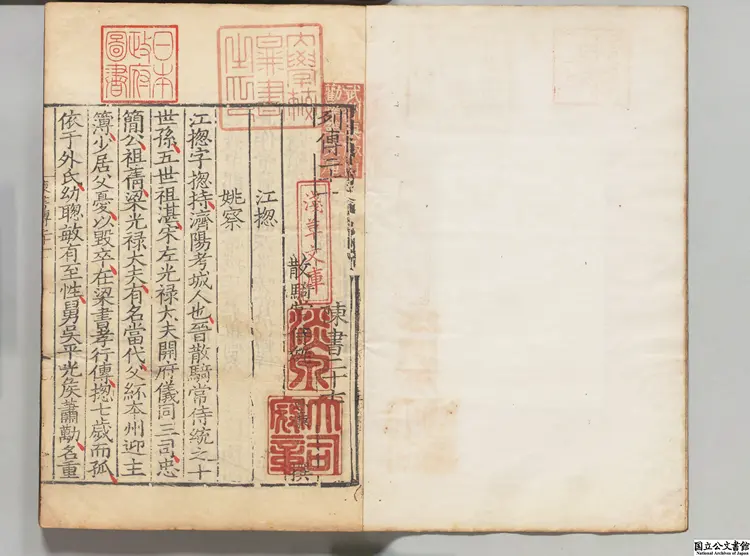 日本
政府
圖書
大學校
圖書
之印
淺草文庫
列傳二十
陳書二十七
散騎常侍 撰
江揔
姚察
江揔字揔持濟陽考城人也晉散騎常侍統之十
世孫五世祖湛宋左光禄大夫開府儀同三司忠
簡公祖蒨梁光禄大夫有名當代父紑本州迎主
簿少居父憂以毀卒在梁書孝行傳揔七歲而孤
依于外氏幼聦敏有至性舅吳平光侯蕭勱名重
国立公文書館
National Archives of Japan